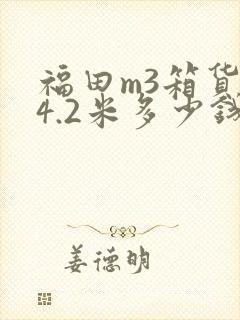 福田m3箱货
4.2米多少钱
姜德明